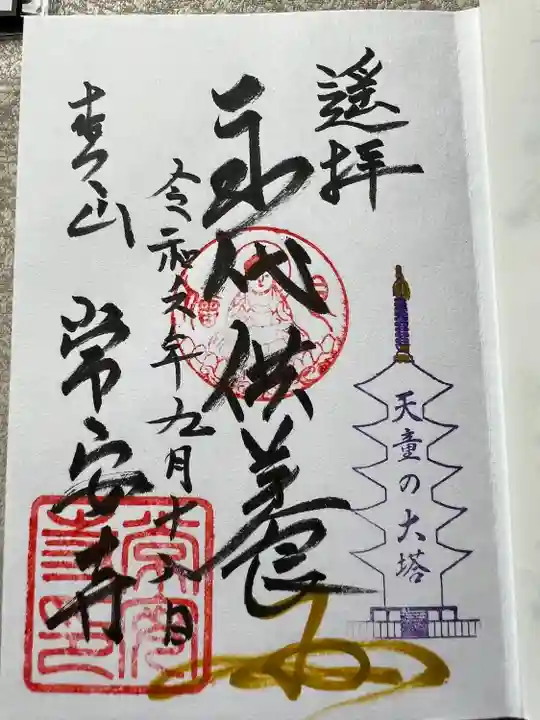 遥拝
天童の大塔
永代供養
令和元年九月十八日
青山 常安寺